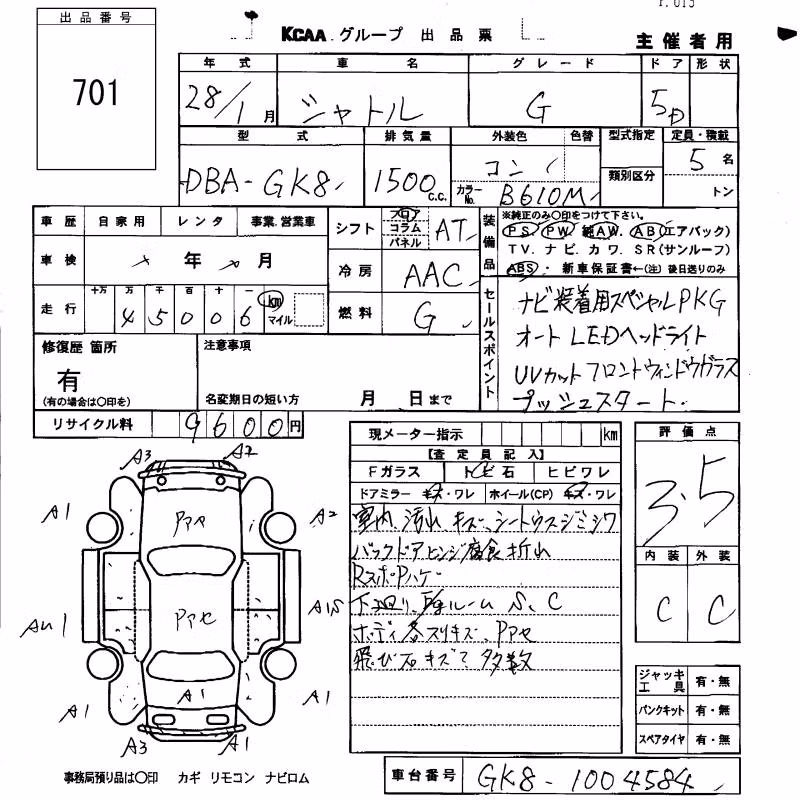 出品番号
701
KCAA グループ 出品票
主催者用
年式 車名 グレード ドア 形状
28/1月 シャトル G 5D
型式 排気量 外装色 色替 型式指定 定員・積載
類別区分
DBA-GK8 1500 c.c. コン カラーNo. B610M 5名
トン
車歴 自家用 レンタ 事業.営業車
車検 年 月
走行 十万 万 千 百 十 一
45006 km マイル
シフト フロア コラム パネル AT
冷房 AAC
燃料 G
装備品
※純正のみ〇印をつけて下さい。
PS. PW. 純AW. AB(エアバック)
TV. ナビ. カワ. SR(サンルーフ)
ABS ・ 新車保証書←(注) 後日送りのみ
セールスポイント
ナビ装着用スペシャルPKG
オートLEDヘッドライト
UVカットフロントウィンドウガラス
プッシュスタート.
修復歴 箇所
有
(有の場合は〇印を)
注意事項
名変期日の短い方 月 日まで
リサイクル料 9600円
現メーター指示 km
【査定員記入】
Fガラス トビ石 ヒビワレ
ドアミラー キズ・ワレ ホイール(CP) キズ・ワレ
室内、汚れ、キズ、シートウスジミシワ
バックドアヒンジ腐食折れ
RスポPハゲ
下廻り、Egルーム S、C
ボディ各スリキズ、Pアセ
飛び石キズ 多数
評価点
3.5
内装 外装
C C
ジャッキ工具 有・無
パンクキット 有・無
スペアタイヤ 有・無
A3 A2
A1 Pアセ A2
AU1 Pアセ A1S
A1 A1 A1
A3 A1
事務局預り品は〇印 カギ リモコン ナビロム
車台番号 GK8-1004584